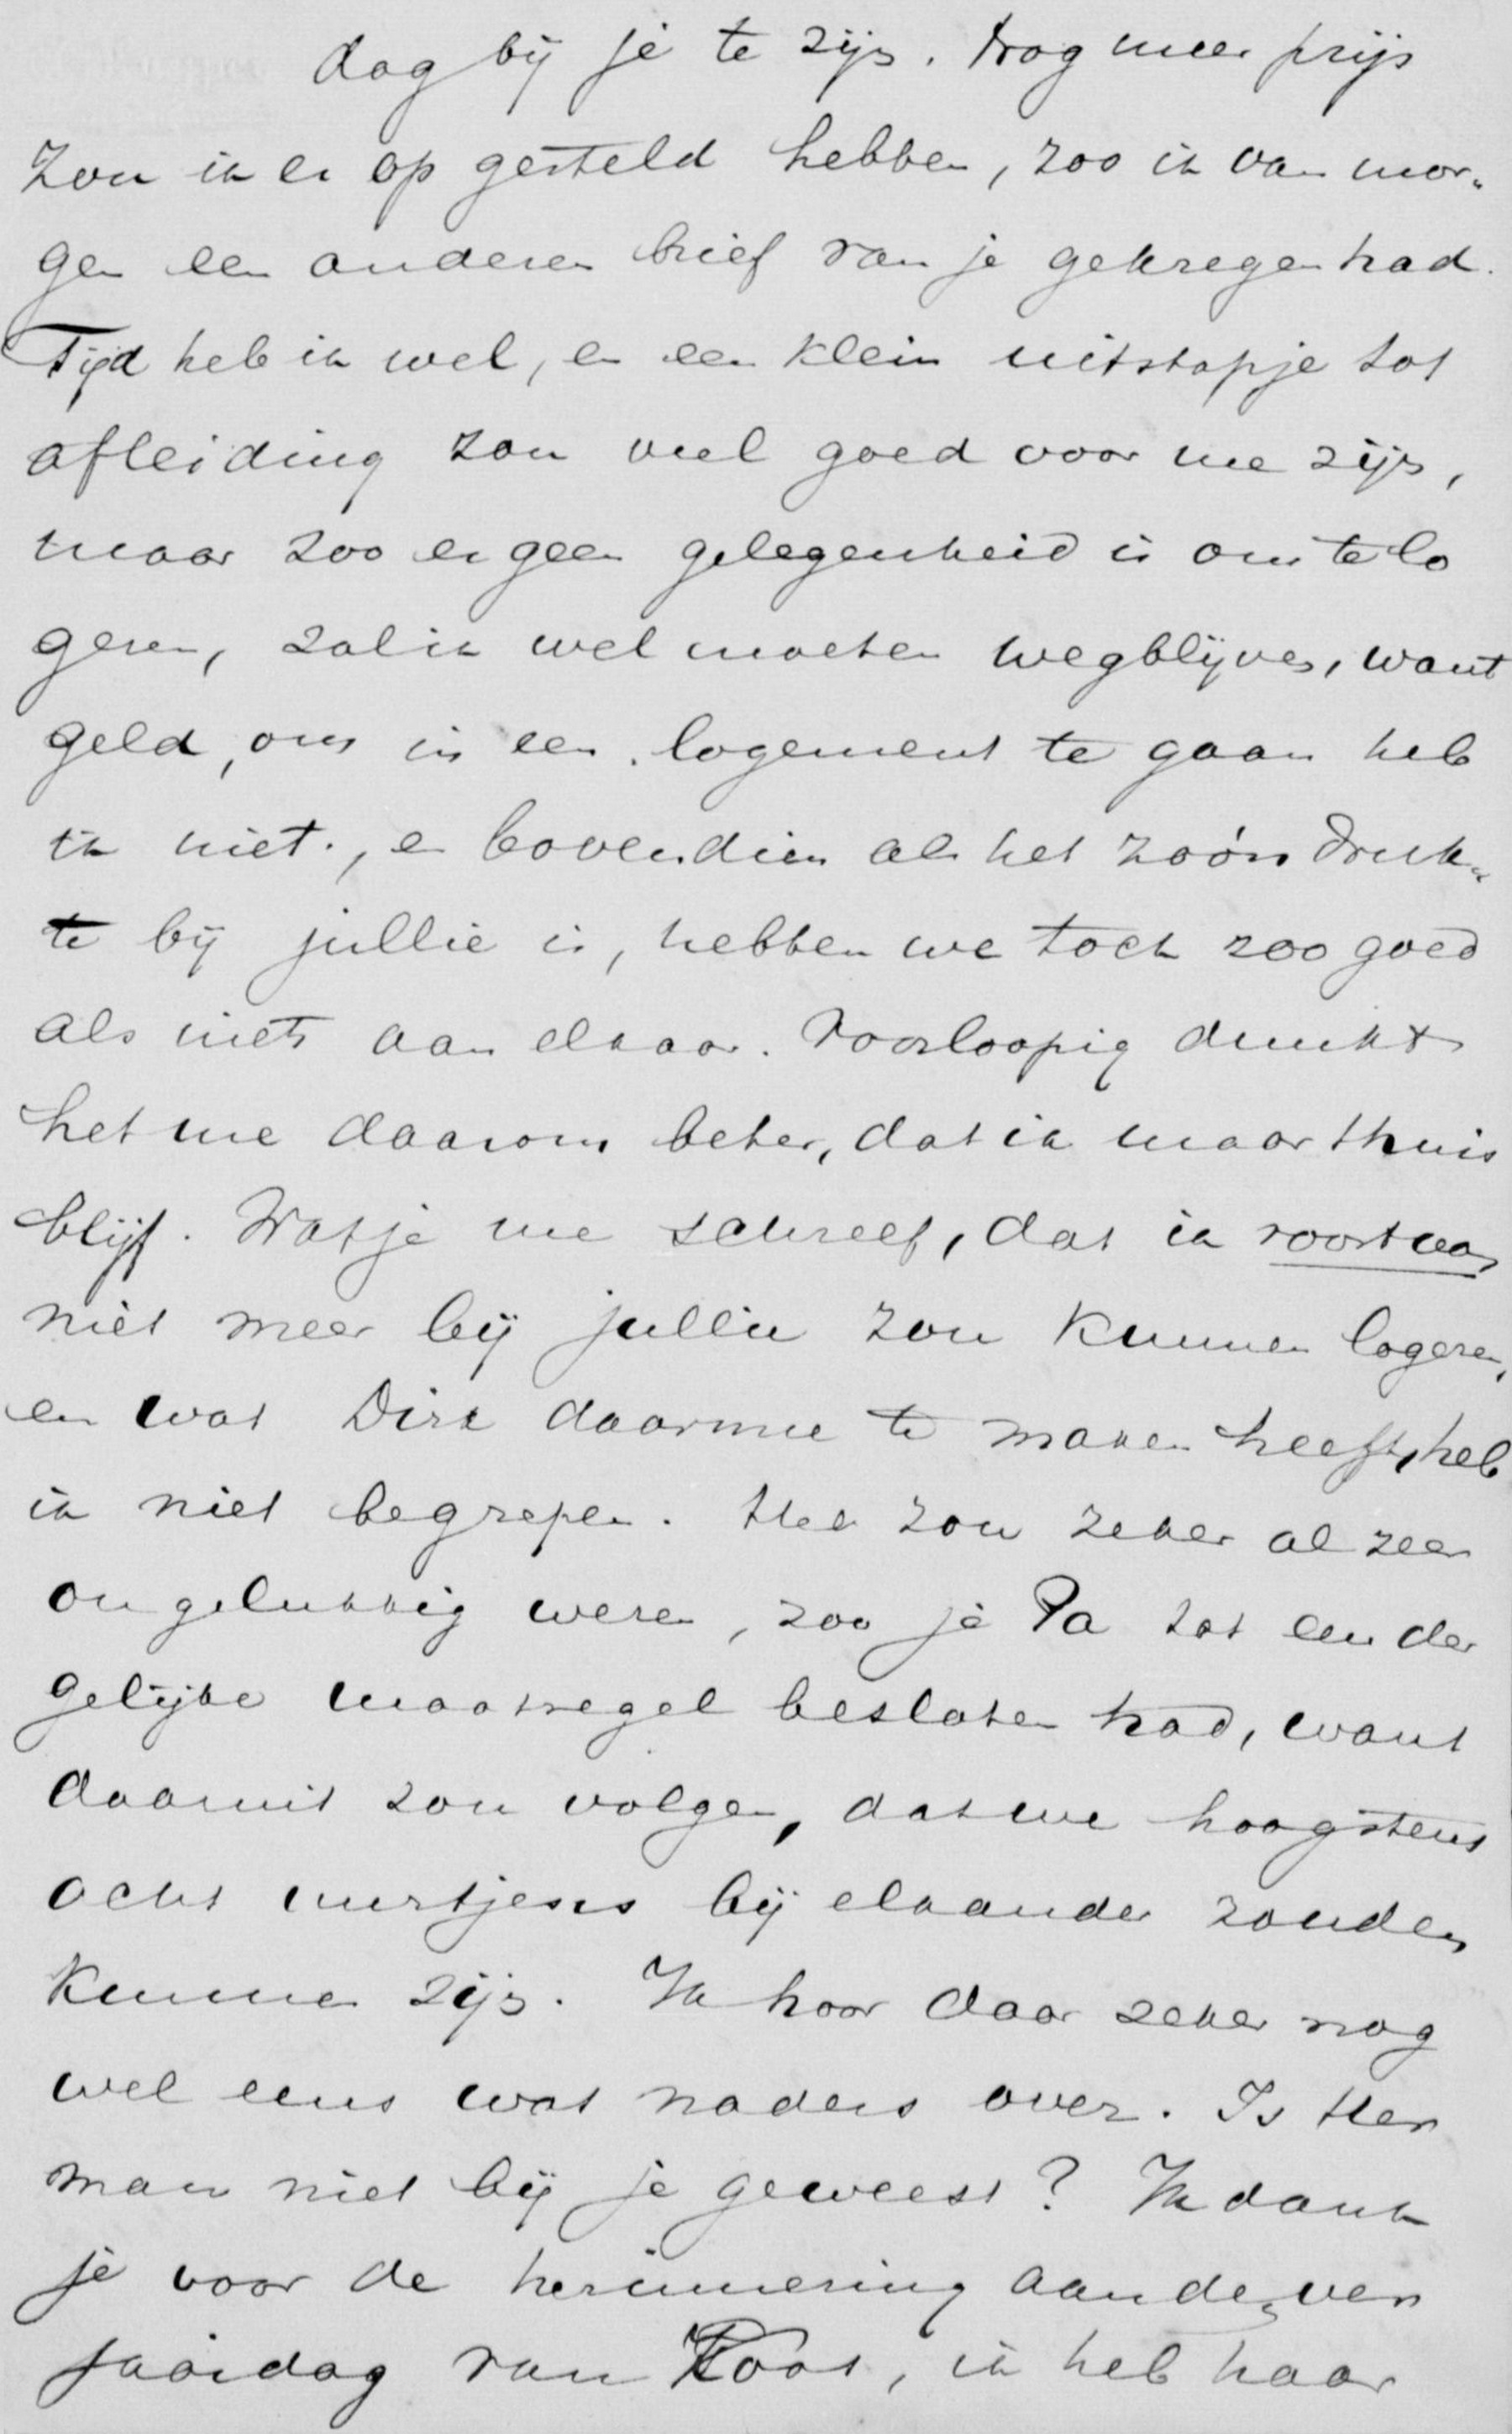 dag bij je te zijn. Nog meer prijs
zou ik er op gesteld hebben, zoo ik van mor„
gen een anderen brief van je gekregen had.
Tijd heb ik wel, en een klein uitstapje tot
afleiding zou veel goed voor me zijn,
maar zoo er geen gelegenheid is om te lo
geren, zal ik wel moeten wegblijven, want
geld, om in een logement te gaan heb
ik niet., en bovendien als het zoo'n druk„
te bij jullie is, hebben we toch zoo goed
als niets aan elkaar. Voorloopig dunkt
het me daarom beter, dat ik maar thuis
blijf. Wat je me schreef, dat ik voortaan
niet meer bij jullie zou kunnen logeren,
en wat Dirk daarmee te maken heeft, heb
ik niet begrepen. Het zou zeker al zeer
ongelukkig wezen, zoo je Pa tot een der
gelijke maatregel besloten had, want
daaruit zou volgen, dat we hoogstens
acht uurtjes bij elkander zouden
kunnen zijn. Ik hoor daar zeker nog
wel eens wat naders over. Is Her
man niet bij je geweest? Ik dank
je voor de herinnering aan den ver
jaardag van Koos, ik heb haar